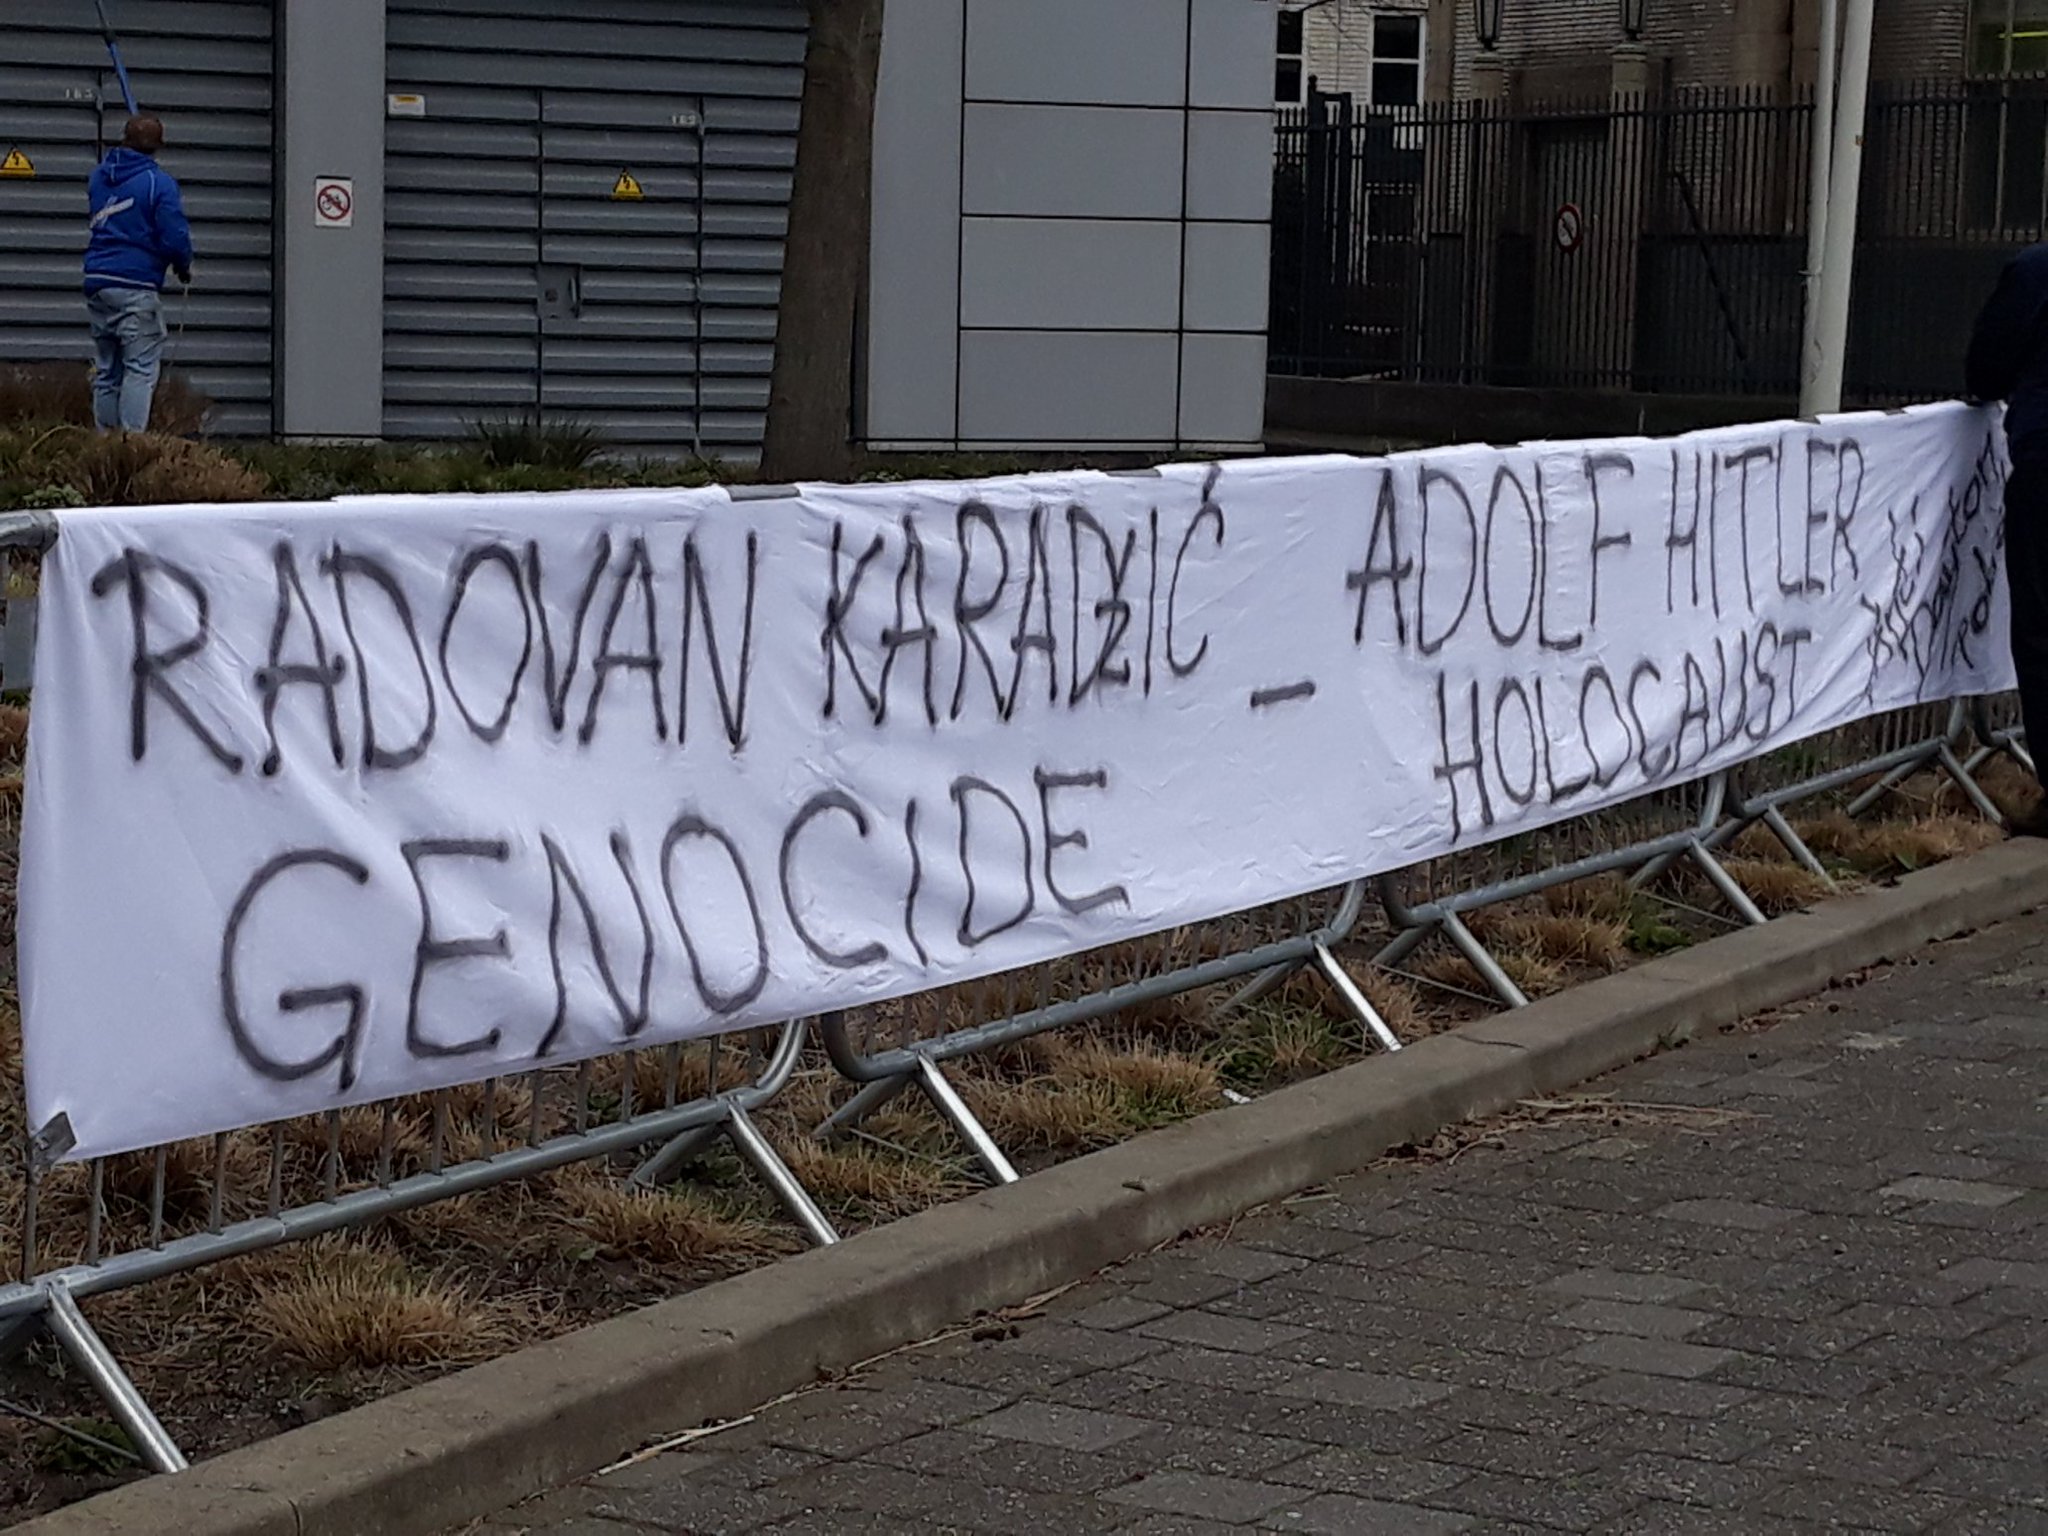 RADOVAN KARADžIĆ - ADOLF HITLER
GENOCIDE
HOLOCAUST